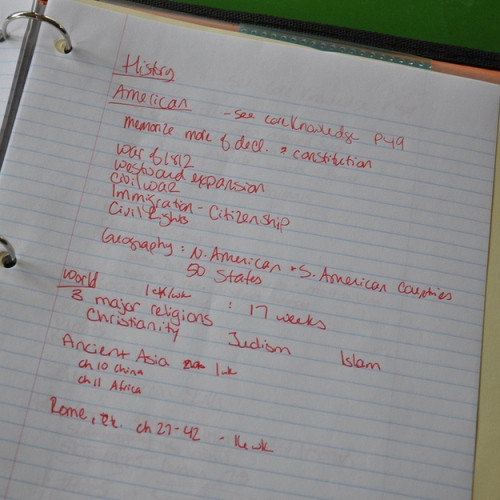 History
American - see core knowledge pg 49
memorize more of decl. & constitution
War of 1812
westward expansion
civil war
Immigration - Citizenship
Civil Rights
Geography : N. American & S. American Countries
50 States
World 1 ch/wk : 17 weeks
3 major religions
Christianity Judism Islam
Ancient Asia 1 wk
ch 10 China
ch 11 Africa
Rome, etc. ch 27-42 - 16 wk